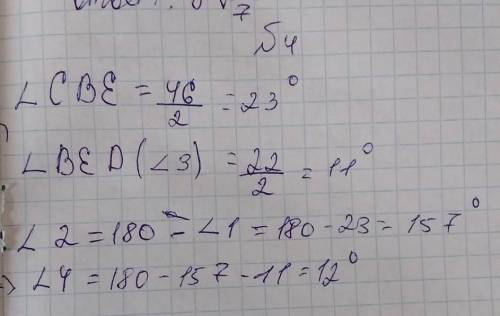 Ответ: 
7
№4
∠CBE = 46/2 = 23°
∠BED (∠3) = 22/2 = 11°
∠2 = 180 - ∠1 = 180 - 23 = 157°
=> ∠4 = 180 - 157 - 11 = 12°